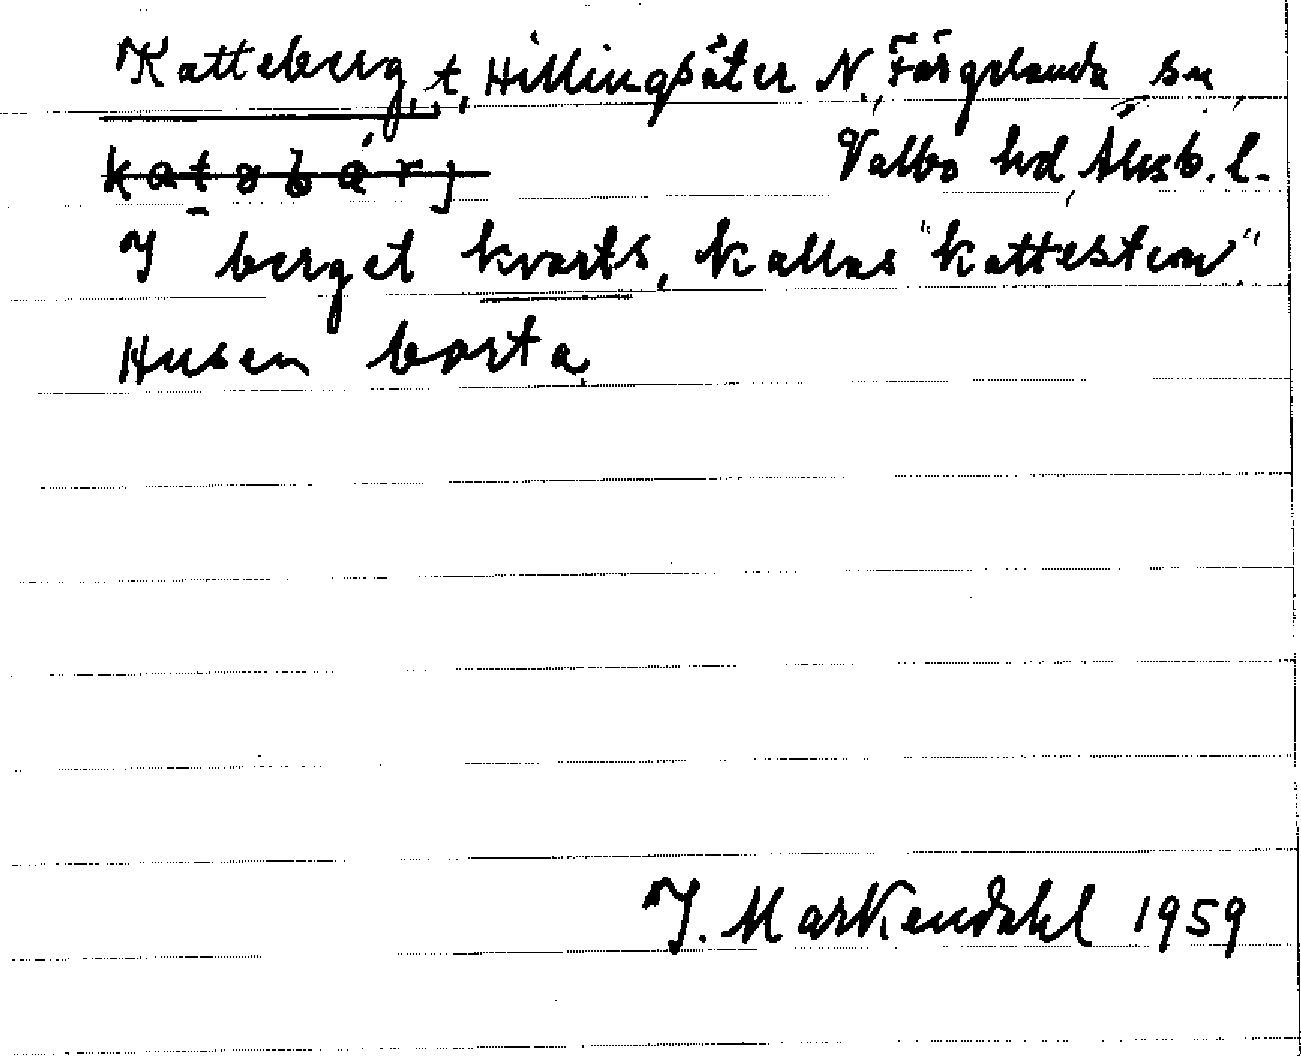 Katteberg, t, Hillingsäter N., Färgelanda sn
katəbárj Valbo hd, Älvsb. l.
I berget kvarts, kallas "kattesten"
Husen borta
J. Markendahl 1959